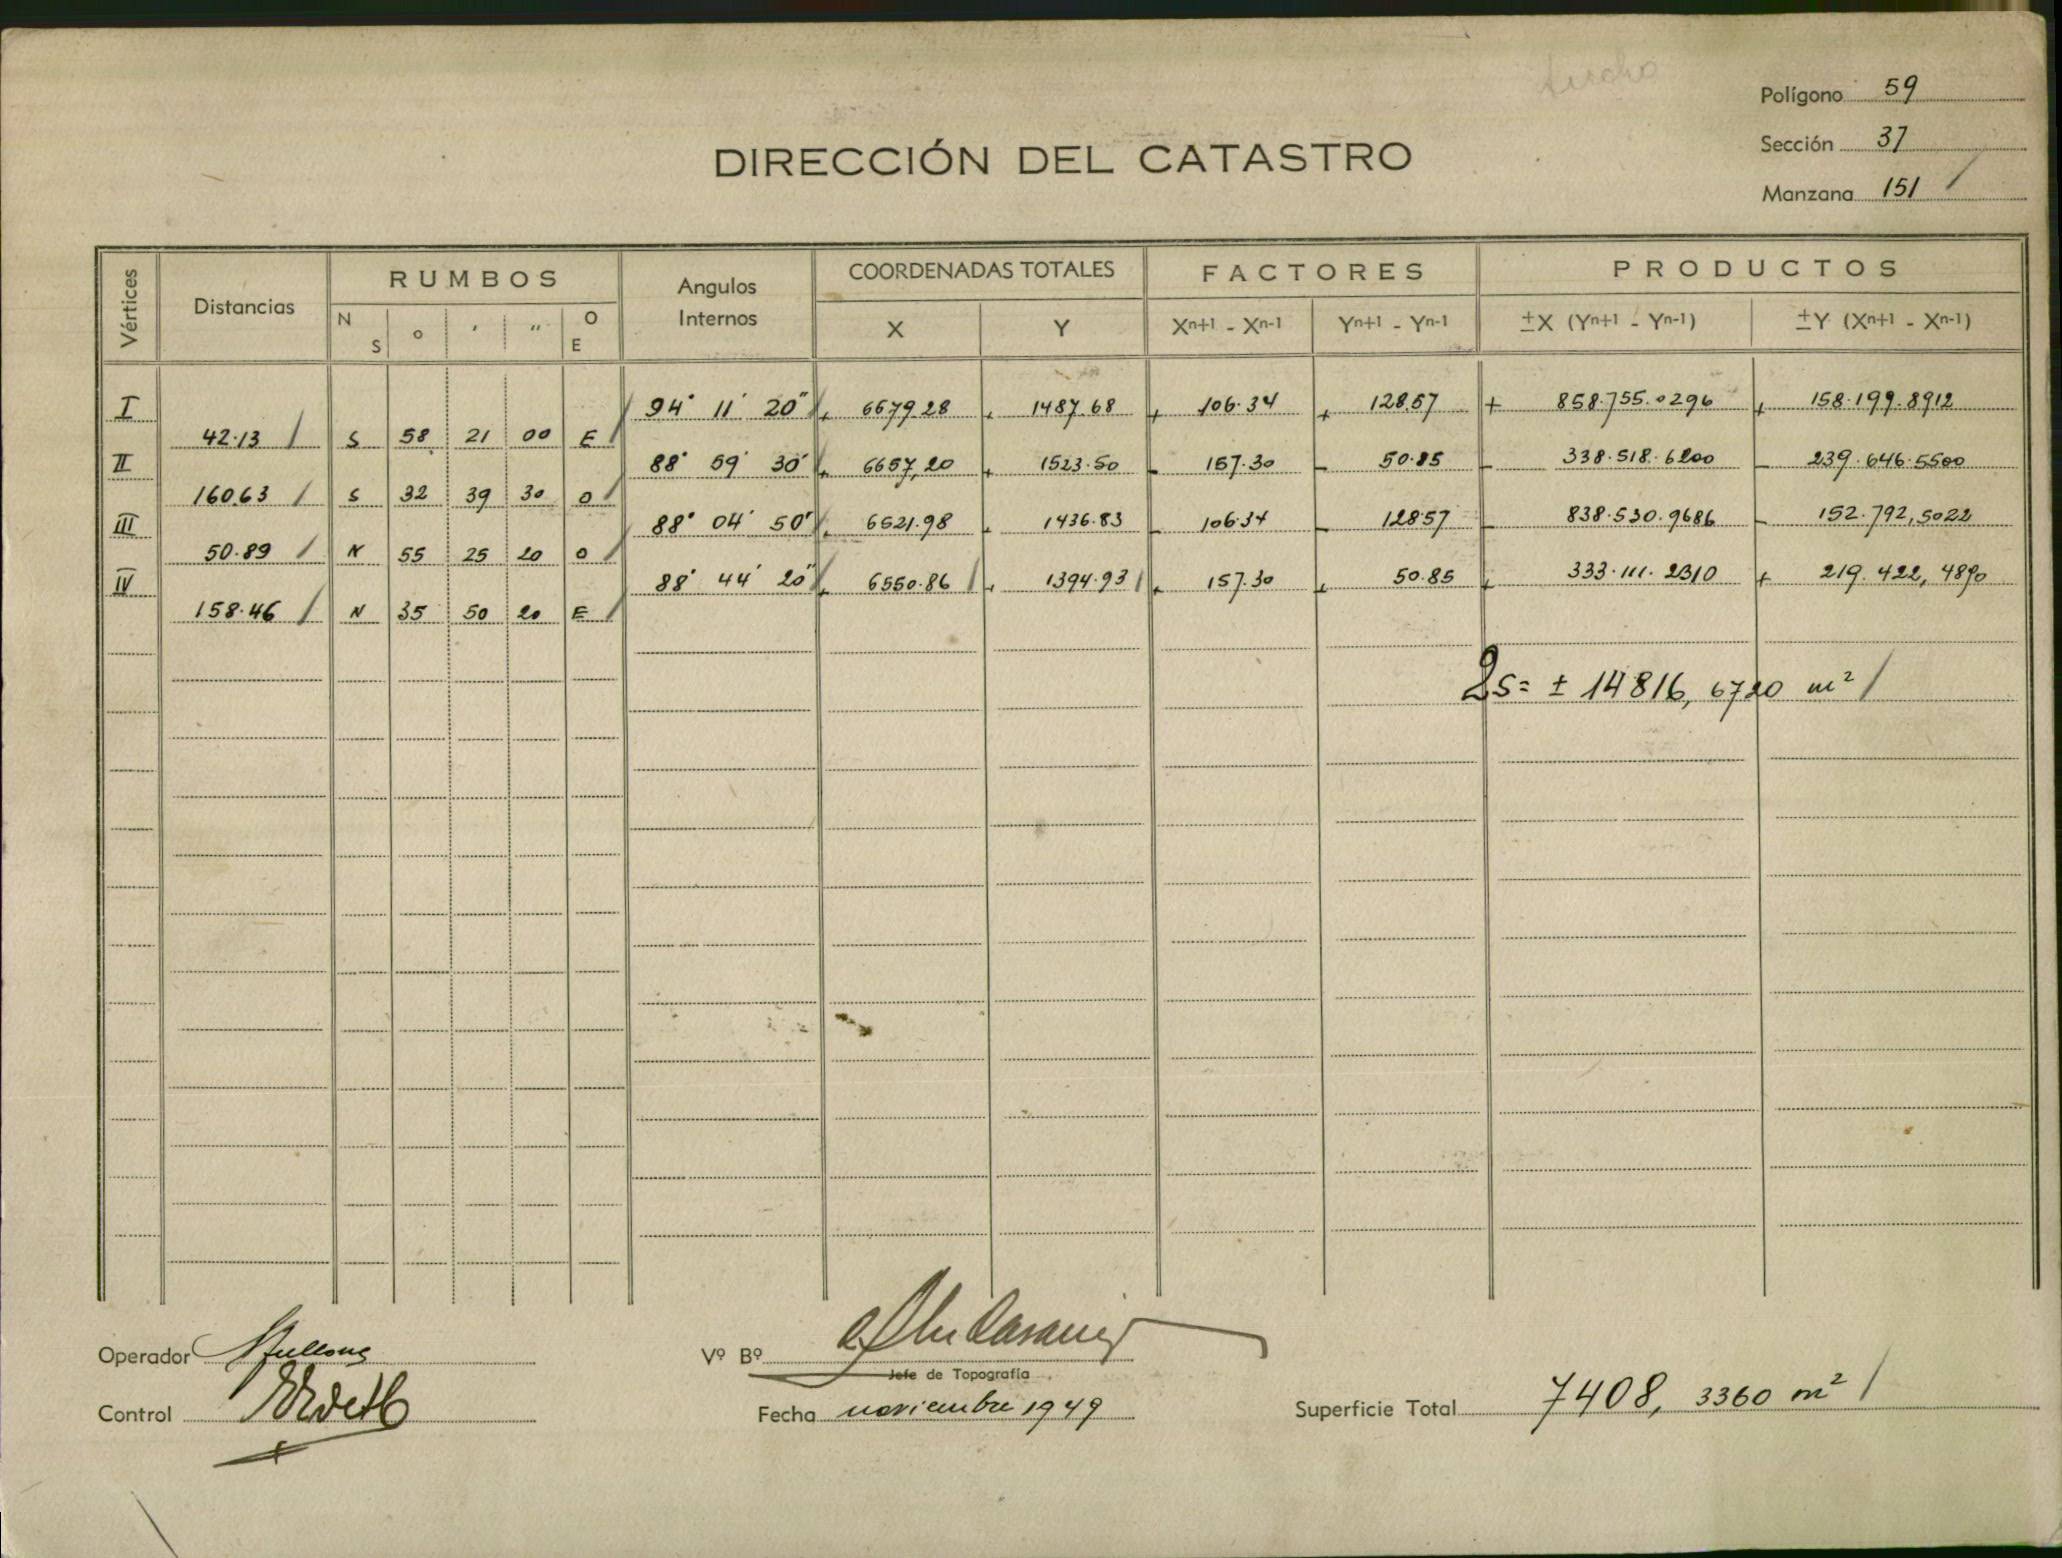 Polígono 59
DIRECCIÓN DEL CATASTRO
Sección 37
Manzana 151 /
Vértices Distancias RUMBOS Angulos Internos COORDENADAS TOTALES FACTORES PRODUCTOS
N S o ' '' O E X Y Xn+1 - Xn-1 Yn+1 - Yn-1 ±X (Yn+1 - Yn-1) ±Y (Xn+1 - Xn-1)
I 94° 11' 20" / + 6679.28 + 1487.68 + 106.34 + 128.57 + 858.755.0296 + 158.199.8912
42.13 / S 58 21 00 E /
II 88° 59' 30" / + 6657,20 + 1523.50 - 157.30 - 50.85 - 338.518.6200 - 239.646.5500
160.63 / S 32 39 30 O /
III 88° 04' 50" / + 6521.98 + 1436.83 - 106.34 - 128.57 - 838.530.9686 - 152.792,5022
50.89 / N 55 25 20 O /
IV 88° 44' 20" / + 6550.86 / + 1394.93 / + 157.30 + 50.85 + 333.111.2310 + 219.422,4890
158.46 / N 35 50 20 E /
2S= ± 14816, 6720 m² /
Operador
Vº Bº
Jefe de Topografía
Control
Fecha noviembre 1949
Superficie Total 7408, 3360 m² /